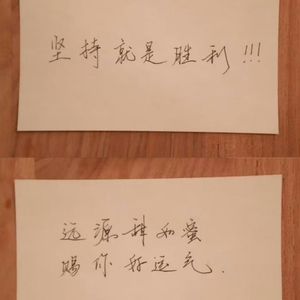 坚持就是胜利!!!
远源祥如蜜
赐你好运气.